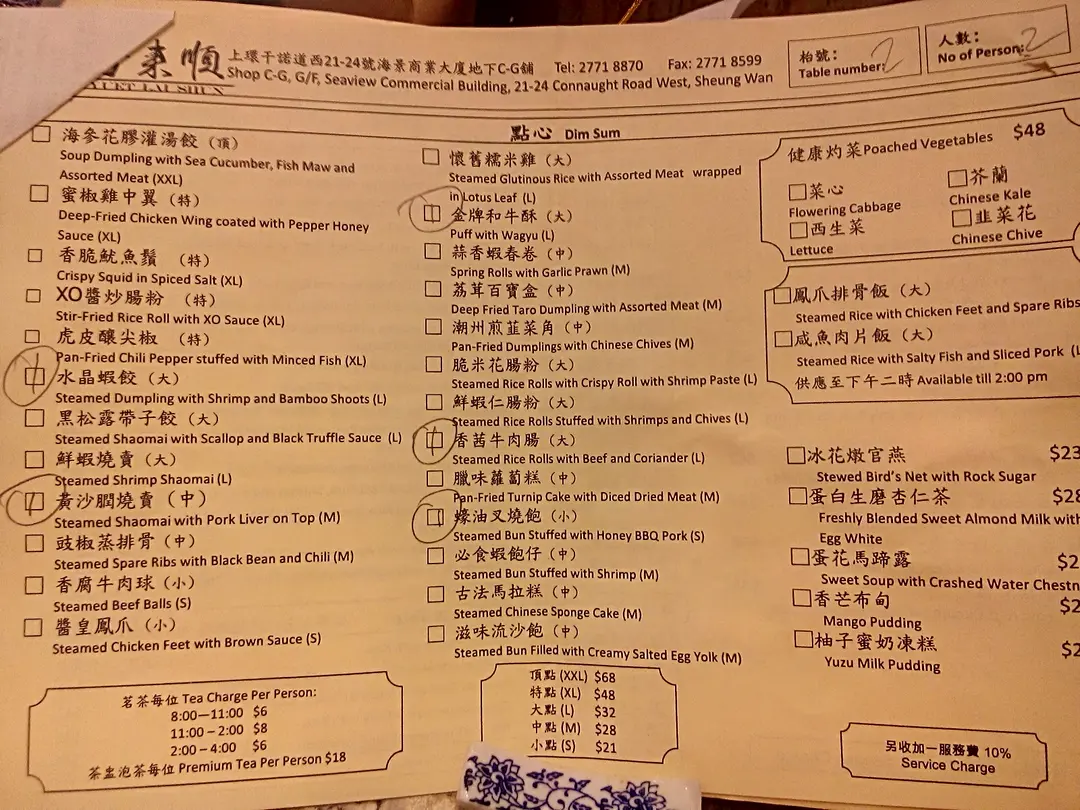 來順
上環干諾道西21-24號海景商業大廈地下C-G舖 Tel: 2771 8870 Fax: 2771 8599
Shop C-G, G/F, Seaview Commercial Building, 21-24 Connaught Road West, Sheung Wan
枱號：
Table number: 2
人數：
No of Person: 2
海參花膠灌湯餃（頂）
Soup Dumpling with Sea Cucumber, Fish Maw and
Assorted Meat (XXL)
蜜椒雞中翼（特）
Deep-Fried Chicken Wing coated with Pepper Honey
Sauce (XL)
香脆魷魚鬚（特）
Crispy Squid in Spiced Salt (XL)
XO醬炒腸粉（特）
Stir-Fried Rice Roll with XO Sauce (XL)
虎皮釀尖椒（特）
Pan-Fried Chili Pepper stuffed with Minced Fish (XL)
水晶蝦餃（大）
Steamed Dumpling with Shrimp and Bamboo Shoots (L)
黑松露帶子餃（大）
Steamed Shaomai with Scallop and Black Truffle Sauce (L)
鮮蝦燒賣（大）
Steamed Shrimp Shaomai (L)
黃沙膶燒賣（中）
Steamed Shaomai with Pork Liver on Top (M)
豉椒蒸排骨（中）
Steamed Spare Ribs with Black Bean and Chili (M)
香腐牛肉球（小）
Steamed Beef Balls (S)
醬皇鳳爪（小）
Steamed Chicken Feet with Brown Sauce (S)
茗茶每位 Tea Charge Per Person:
8:00—11:00 $6
11:00 – 2:00 $8
2:00 – 4:00 $6
茶盅泡茶每位 Premium Tea Per Person $18
點心 Dim Sum
懷舊糯米雞（大）
Steamed Glutinous Rice with Assorted Meat wrapped
in Lotus Leaf (L)
金牌和牛酥（大）
Puff with Wagyu (L)
蒜香蝦春卷（中）
Spring Rolls with Garlic Prawn (M)
荔茸百寶盒（中）
Deep Fried Taro Dumpling with Assorted Meat (M)
潮州煎韮菜角（中）
Pan-Fried Dumplings with Chinese Chives (M)
脆米花腸粉（大）
Steamed Rice Rolls with Crispy Roll with Shrimp Paste (L)
鮮蝦仁腸粉（大）
Steamed Rice Rolls Stuffed with Shrimps and Chives (L)
香茜牛肉腸（大）
Steamed Rice Rolls with Beef and Coriander (L)
臘味蘿蔔糕（中）
Pan-Fried Turnip Cake with Diced Dried Meat (M)
蠔油叉燒飽（小）
Steamed Bun Stuffed with Honey BBQ Pork (S)
必食蝦飽仔（中）
Steamed Bun Stuffed with Shrimp (M)
古法馬拉糕（中）
Steamed Chinese Sponge Cake (M)
滋味流沙飽（中）
Steamed Bun Filled with Creamy Salted Egg Yolk (M)
頂點 (XXL) $68
特點 (XL) $48
大點 (L) $32
中點 (M) $28
小點 (S) $21
健康灼菜Poached Vegetables $48
菜心
Flowering Cabbage
芥蘭
Chinese Kale
西生菜
Lettuce
韮菜花
Chinese Chive
鳳爪排骨飯（大）
Steamed Rice with Chicken Feet and Spare Ribs
咸魚肉片飯（大）
Steamed Rice with Salty Fish and Sliced Pork (L
供應至下午二時 Available till 2:00 pm
冰花燉官燕 $23
Stewed Bird's Net with Rock Sugar
蛋白生磨杏仁茶 $28
Freshly Blended Sweet Almond Milk with
Egg White
蛋花馬蹄露 $2
Sweet Soup with Crashed Water Chestn
香芒布甸 $2
Mango Pudding
柚子蜜奶凍糕 $2
Yuzu Milk Pudding
另收加一服務費 10%
Service Charge